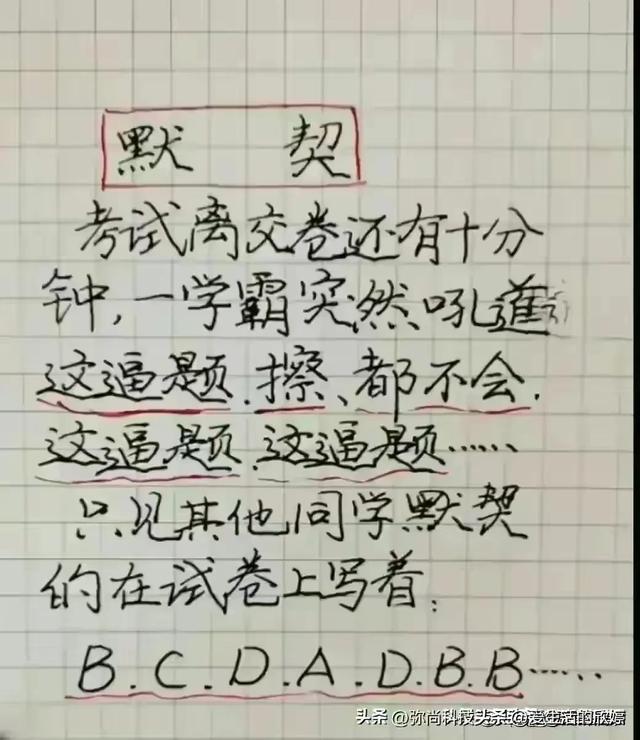 默 契
考试离交卷还有十分
钟,一学霸突然吼道
这逼题.擦、都不会.
这逼题.这逼题……
只见其他同学默契
的在试卷上写着:
B.C.D.A.D.B.B……
头条 @弥尚科技
头条 @爱生活的欣嫱